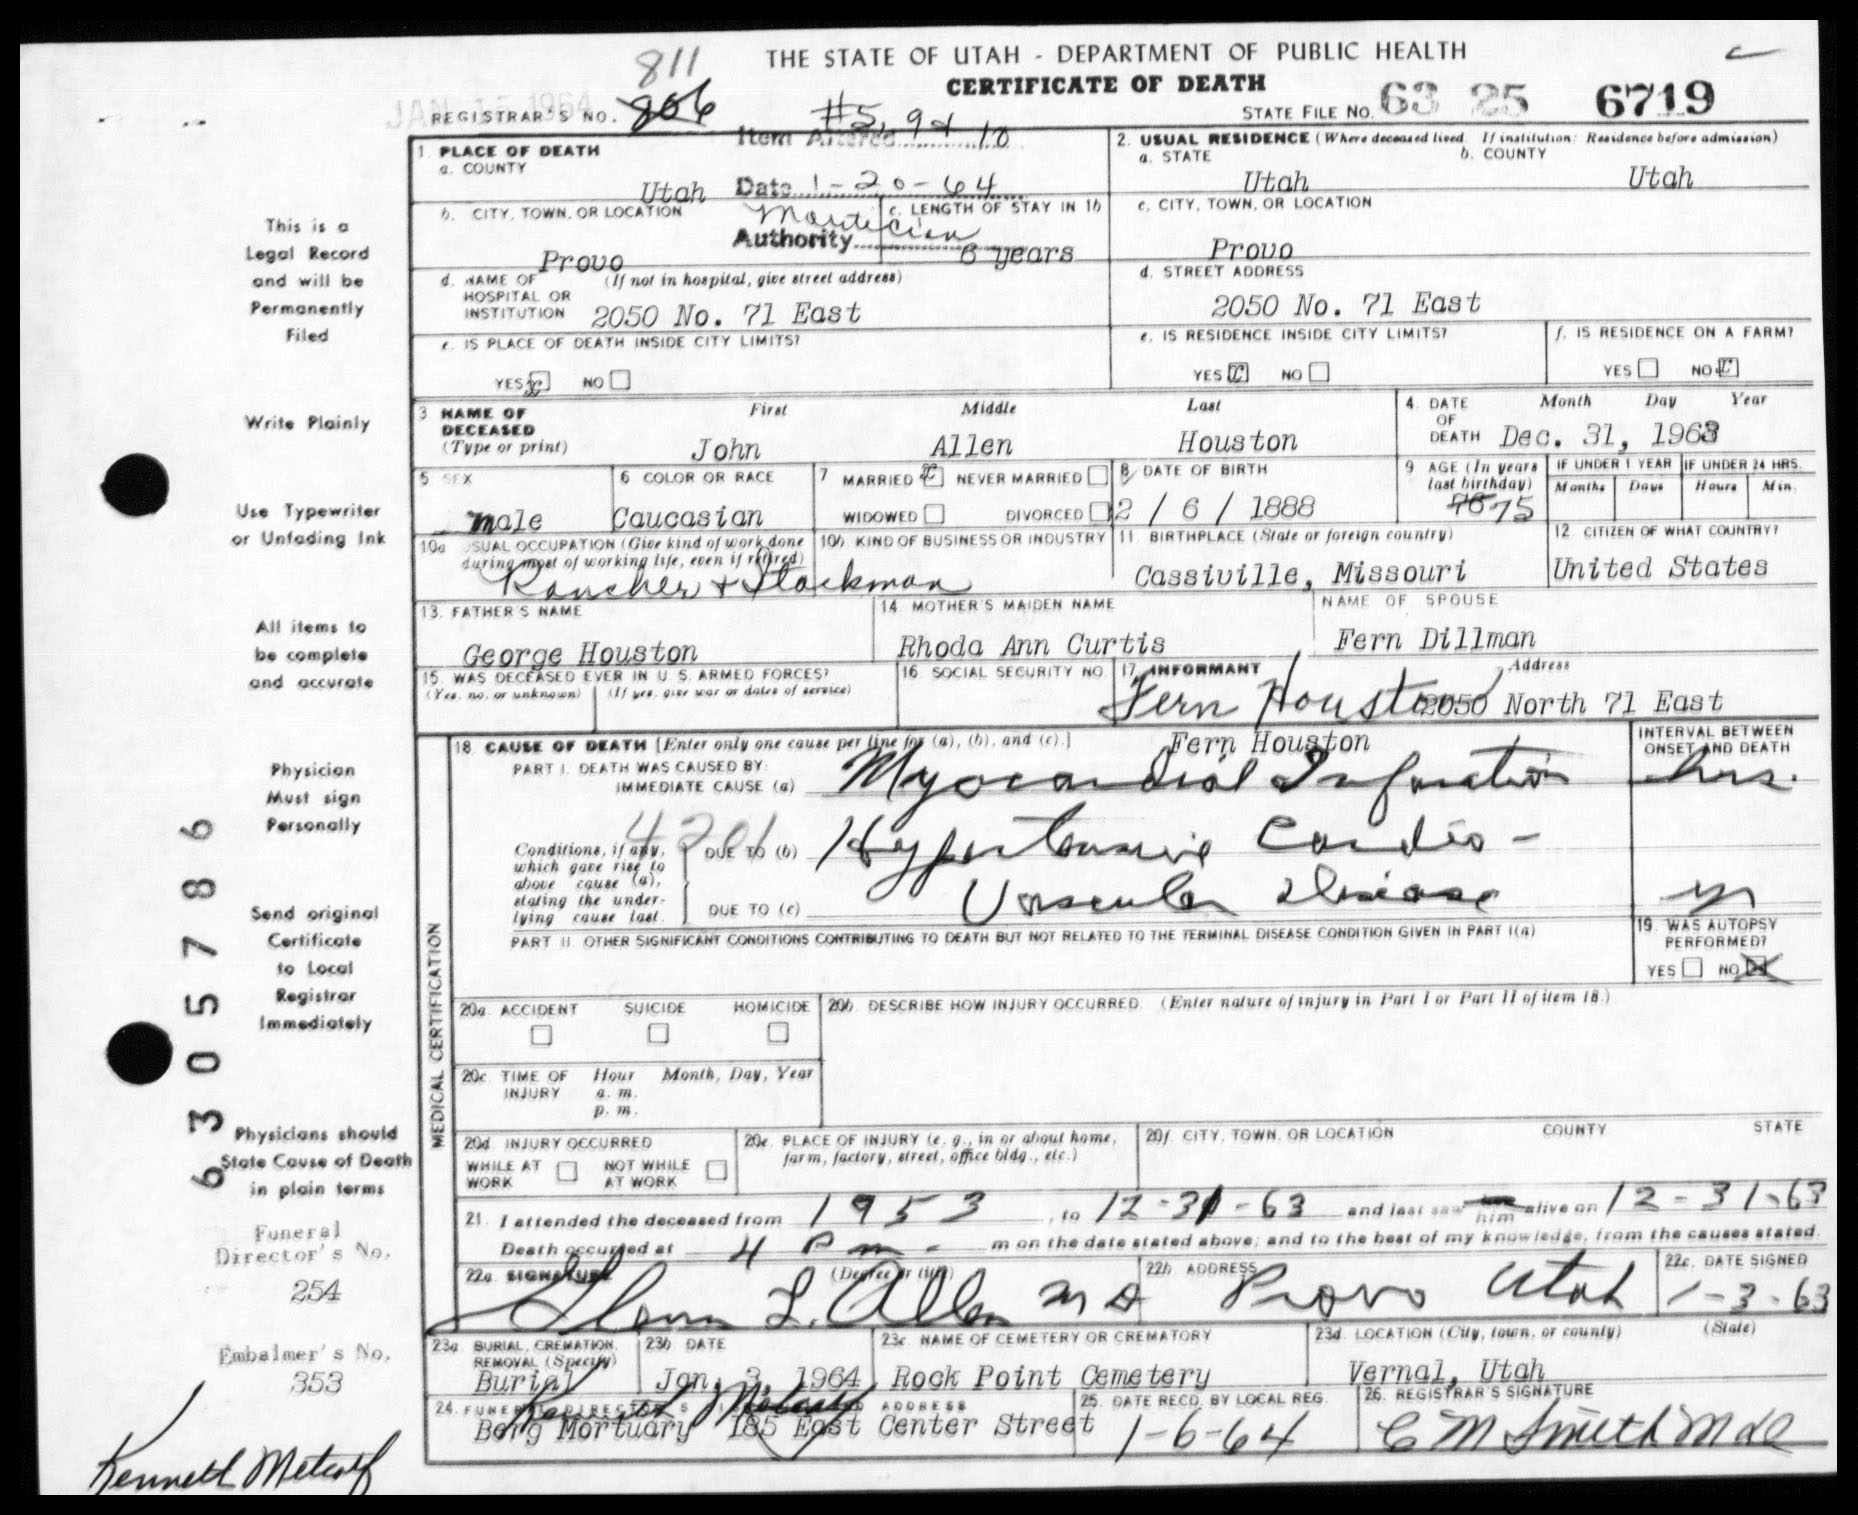 THE STATE OF UTAH - DEPARTMENT OF PUBLIC HEALTH
CERTIFICATE OF DEATH
811
JAN 15 1964
REGISTRAR'S NO. 806
STATE FILE NO. 63 25 6719
#5, 9 & 10
Item Altered
Date 1-20-64
Mortician
Authority
1. PLACE OF DEATH
a. COUNTY
Utah
2. USUAL RESIDENCE (Where deceased lived. If institution: Residence before admission)
a. STATE
Utah
b. COUNTY
Utah
b. CITY, TOWN, OR LOCATION
Provo
c. LENGTH OF STAY IN 1b
6 years
c. CITY, TOWN, OR LOCATION
Provo
d. NAME OF HOSPITAL OR INSTITUTION
(If not in hospital, give street address)
2050 No. 71 East
d. STREET ADDRESS
2050 No. 71 East
e. IS PLACE OF DEATH INSIDE CITY LIMITS?
YES x NO
e. IS RESIDENCE INSIDE CITY LIMITS?
YES x NO
f. IS RESIDENCE ON A FARM?
YES NO x
3. NAME OF DECEASED
(Type or print)
First Middle Last
John Allen Houston
4. DATE OF DEATH
Month Day Year
Dec. 31, 1963
5 SEX
male
6 COLOR OR RACE
Caucasian
7 MARRIED x NEVER MARRIED
WIDOWED DIVORCED
8 DATE OF BIRTH
2 / 6 / 1888
9 AGE (In years last birthday)
76 75
IF UNDER 1 YEAR
Months Days
IF UNDER 24 HRS.
Hours Min.
10a USUAL OCCUPATION (Give kind of work done during most of working life, even if retired)
10b. KIND OF BUSINESS OR INDUSTRY
Rancher & Stockman
11. BIRTHPLACE (State or foreign country)
Cassiville, Missouri
12. CITIZEN OF WHAT COUNTRY?
United States
13. FATHER'S NAME
George Houston
14. MOTHER'S MAIDEN NAME
Rhoda Ann Curtis
NAME OF SPOUSE
Fern Dillman
15. WAS DECEASED EVER IN U.S. ARMED FORCES?
(Yes, no, or unknown) (If yes, give war or dates of service)
16. SOCIAL SECURITY NO.
17. INFORMANT Address
Fern Houston 2050 North 71 East
Fern Houston
MEDICAL CERTIFICATION
18. CAUSE OF DEATH [Enter only one cause per line for (a), (b), and (c).]
INTERVAL BETWEEN ONSET AND DEATH
PART I. DEATH WAS CAUSED BY:
IMMEDIATE CAUSE (a) Myocardial Infarction hrs.
4201
Conditions, if any, which gave rise to above cause (a), stating the underlying cause last.
DUE TO (b) Hypertensive Cardio-
DUE TO (c) Vascular Disease yr
PART II. OTHER SIGNIFICANT CONDITIONS CONTRIBUTING TO DEATH BUT NOT RELATED TO THE TERMINAL DISEASE CONDITION GIVEN IN PART I(a)
19. WAS AUTOPSY PERFORMED?
YES NO X
20a. ACCIDENT SUICIDE HOMICIDE
20b. DESCRIBE HOW INJURY OCCURRED. (Enter nature of injury in Part I or Part II of item 18.)
20c. TIME OF INJURY
Hour Month, Day, Year
a. m.
p. m.
20d. INJURY OCCURRED
WHILE AT WORK NOT WHILE AT WORK
20e. PLACE OF INJURY (e. g., in or about home, farm, factory, street, office bldg., etc.)
20f. CITY, TOWN, OR LOCATION COUNTY STATE
21. I attended the deceased from 1953, to 12-31-63 and last saw him alive on 12-31-63
Death occurred at 4 P m. m on the date stated above; and to the best of my knowledge, from the causes stated.
22a. SIGNATURE (Degree or title)
L. Allen MD
22b. ADDRESS
Provo Utah
22c. DATE SIGNED
1-3-63
23a. BURIAL, CREMATION, REMOVAL (Specify)
Burial
23b. DATE
Jan. 3, 1964
23c. NAME OF CEMETERY OR CREMATORY
Rock Point Cemetery
23d. LOCATION (City, town, or county) (State)
Vernal, Utah
24. FUNERAL DIRECTOR'S ADDRESS
Kenneth Metcalf
Berg Mortuary 185 East Center Street
25. DATE RECD. BY LOCAL REG.
1-6-64
26. REGISTRAR'S SIGNATURE
C M Smith
This is a
Legal Record
and will be
Permanently
Filed
Write Plainly
Use Typewriter
or Unfading Ink
All items to
be complete
and accurate
Physician
Must sign
Personally
Send original
Certificate
to Local
Registrar
Immediately
Physicians should
State Cause of Death
in plain terms
Funeral
Director's No.
254
Embalmer's No.
353
Kenneth Metcalf
6305786